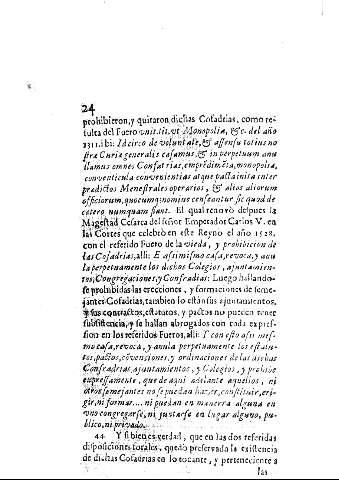 24
prohibieron, y quitaron dichas Cofadrias, como re-
sulta del Fuero unic. tit. ut Monopolia, &c. del año
1311. ibi: Idcirco de voluntate, & assensu totius no
stræ Curiæ generalis casamus, & in perpetuum anu
llamus omnes Confatrias, emprēdimēta, monopolia,
conventicula convenientias atque pacta inita inter
prædictos Menestrales operarios, & altos aliorum
officiorum, quocumq; nomine censeantur sic quod de
cetero numquam fiant. El qual renovò despues la
Magestad Cesarea del señor Emperador Carlos V. en
las Cortes que celebrò en este Reyno el año 1528,
con el referido Fuero de la vieda, y prohibicion de
las Cofadrias, alli: E assimismo casa, revoca, y anu
la perpetuamente los dichos Colegios, ajuntamien-
tos, Congregaciones y Confadrias: Luego hallando-
se prohibidas las erecciones, y formaciones de seme-
jantes Cofadrias, tambien lo estàn sus ajuntamientos,
y sus contractos, estatutos, y pactos no pueden tener
subsistencia, y se hallan abrogados con toda expres-
sion en los referidos Fueros, alli: Y con esto assi mes-
mo casa, revoca, y anula perpetuamente los estatu-
tos, pactos, cōvensiones, y ordinaciones de las dichas
Confradrias, ajuntamientos, y Colegios, y prohibe
expressamente, que de aqui adelante aquellos, ni
otros semejantes no se puedan hazer, constituir, eri-
gir, ni formar.... ni puedan en manera alguna en
uno congregarse, ni juntarse en lugar alguno, pu-
blico, ni privado.
44 Y si bien es verdad, que en las dos referidas
disposiciones forales, quedò preservada la existencia
de dichas Cofadrias en lo tocante, y perteneciente a
las